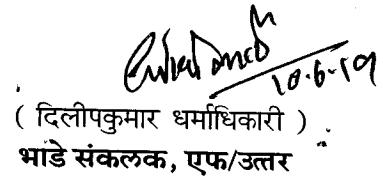 10-6-19
( दिलीपकुमार धर्माधिकारी )
भाडे संकलक, एफ/उत्तर